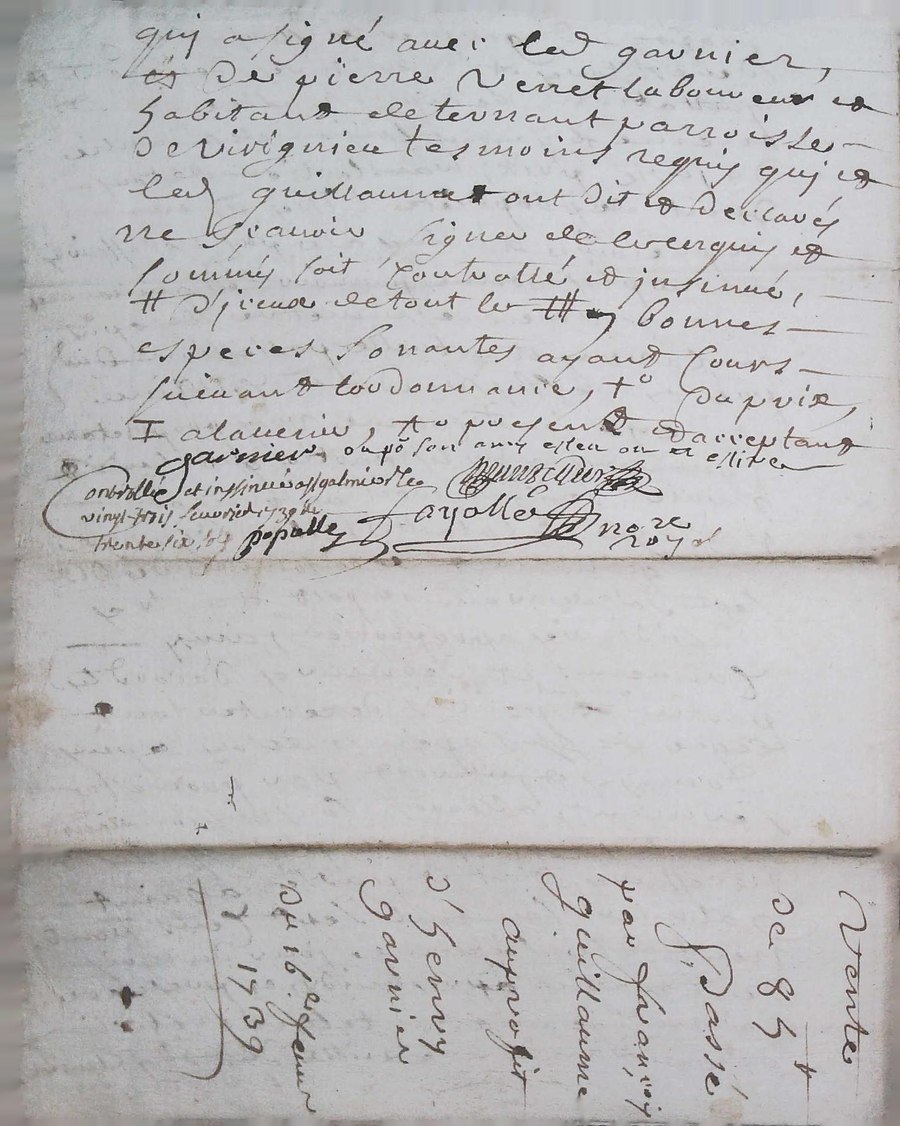 qui a signé avec led garnier,
et De pierre Verret laboureur et
habitant de ternant parroisse
De Virignieu tesmoins requis qui et
led guillaume ont dit et declarés
ne scavoir signer de ce enquis et
sommés soit controllé et insinué,
# D'iceux de tout le # en bonnes
especes sonantes ayant cours
suivant lordonnance, to du prix,
I alavenir, to present et acceptant
garnier ou po son amy esleu ou a eslire
controllé et insinué a st galmier le
vingt trois fevrier 1739 Re
trente six sols populle
fayolle no re
roya l
Vente
de 85 t
S. Dassé
par françois
guillaume
au profit
d'henry
garnier
du 16e fevrier
1739